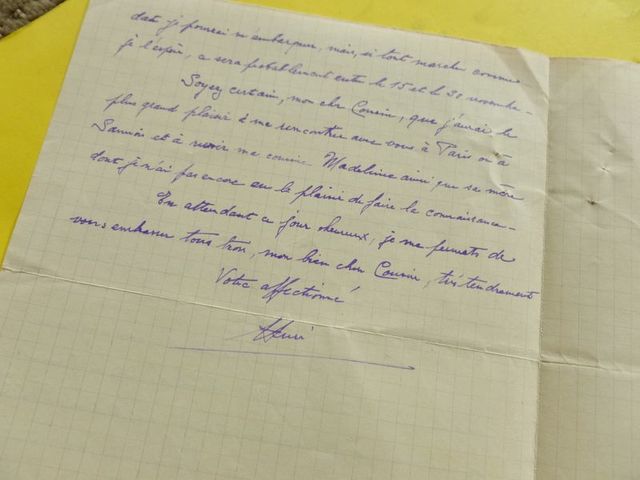 date je pourrai m'embarquer, mais, si tout marche comme
je l'espère, ce sera probablement entre le 15 et le 30 novembre –
Soyez certain, mon cher Cousin, que j'aurai le
plus grand plaisir à me rencontrer avec vous à Paris ou à
Sannois et à revoir ma cousine Madeleine ainsi que sa mère
dont je n'ai pas encore eu le plaisir de faire la connaissance –
En attendant ce jour heureux, je me permets de
vous embrasser tous trois, mon bien cher Cousin, très tendrement
Votre affectionné
Henri